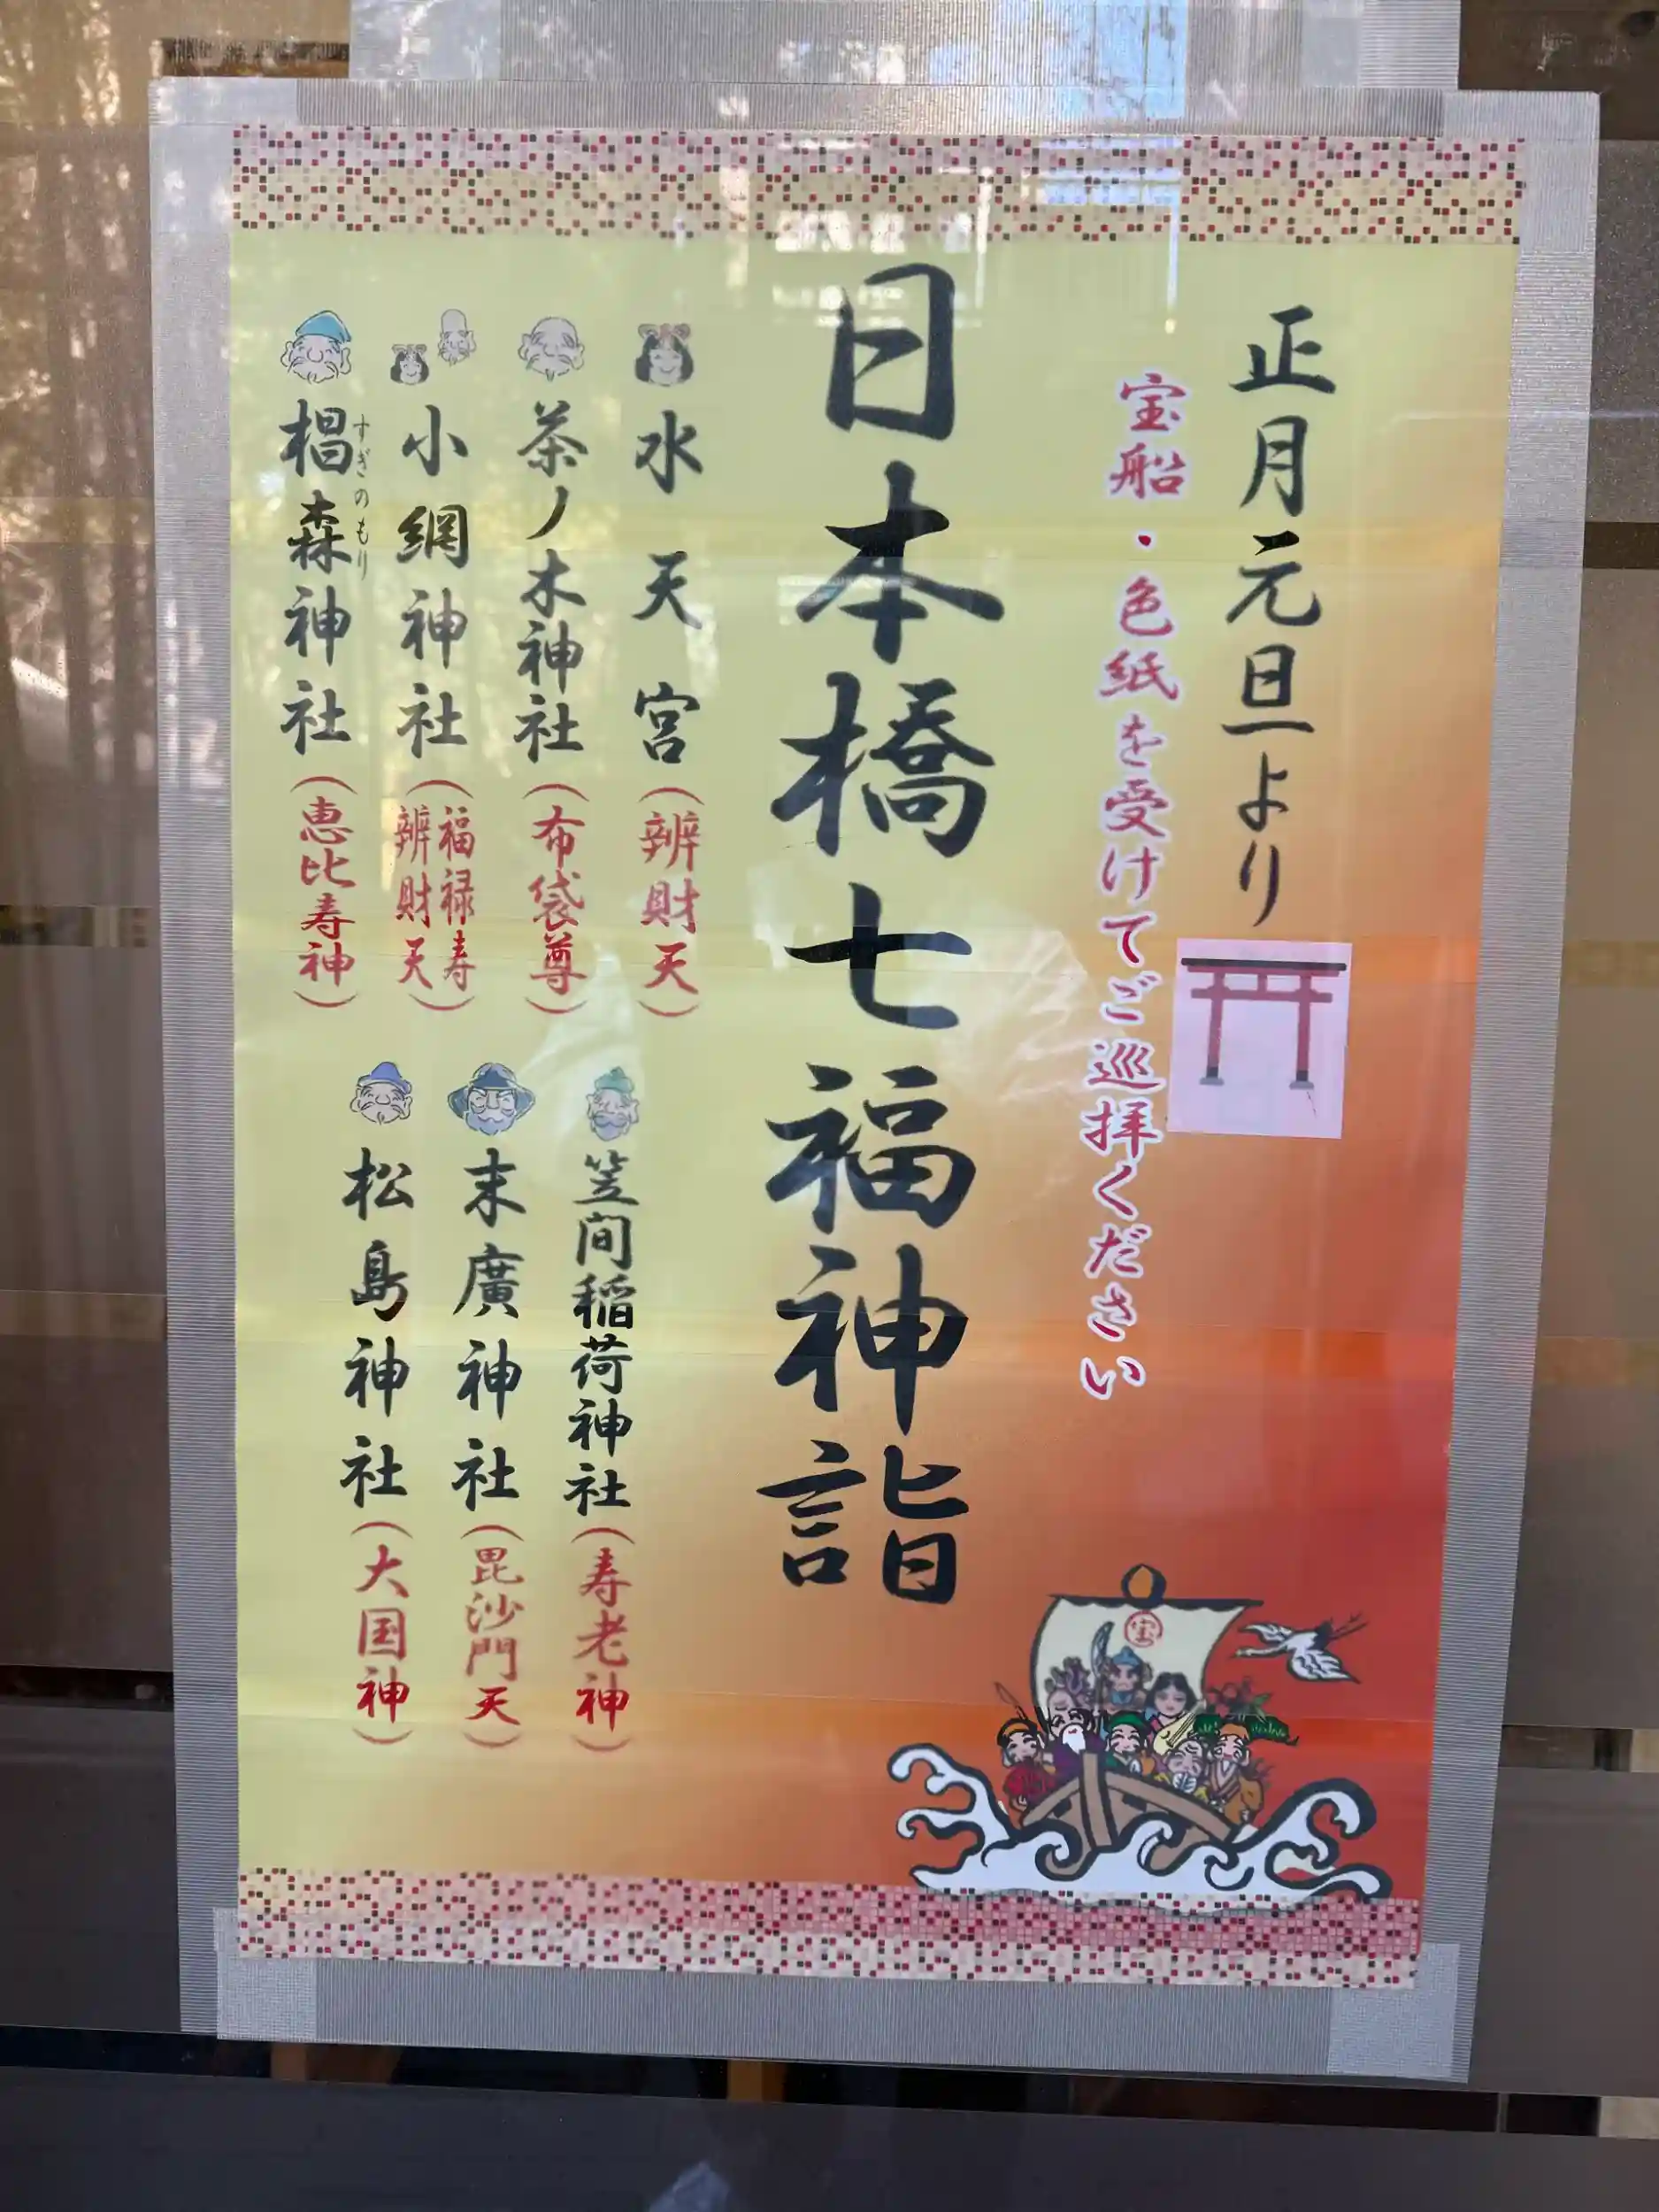 正月元旦より
宝船・色紙を受けてご巡拝ください
日本橋七福神詣
水天宮(辨財天)
茶ノ木神社(布袋尊)
小網神社(福禄寿
辨財天)
すぎのもり
椙森神社(恵比寿神)
笠間稲荷神社(寿老神)
末廣神社(毘沙門天)
松島神社(大国神)
宝